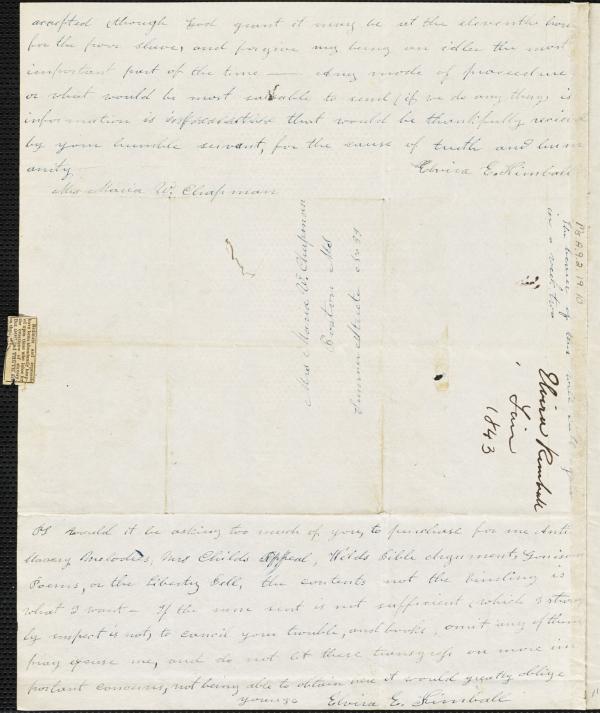 accepted though God grant it may be at the eleventh hour
for the poor slave, and forgive my being an idler the most
important part of the time — Any mode of proceedure
or what would be most suitable to send (if we do any thing) is
information is that would be thankfully recieved
by your humble servant, for the cause of truth and hum
anity. Elvira E. Kimball
Mrs Maria W. Chapman
Mrs Maria W. Chapman
Boston Ms
Summer Street No 39
The bearer of this will call again
in a week or two
Elvira Kimball
Fair
1843
PS Would it be asking too much of you, to purchase for me Anti
Slavery Melodies, Mrs Childs Appeal, Welds Bible Argument,
Poems, or the Liberty Bell, the contents not the binding is
what I want — If the sent is not sufficient (which I strong
ly suspect is not) to cancil your trouble, and books, omit any of them
pray excuse me, and do not let these transgress on more im
portant concerns, not being able to obtain one it would greatly oblige
yours Elvira E. Kimball